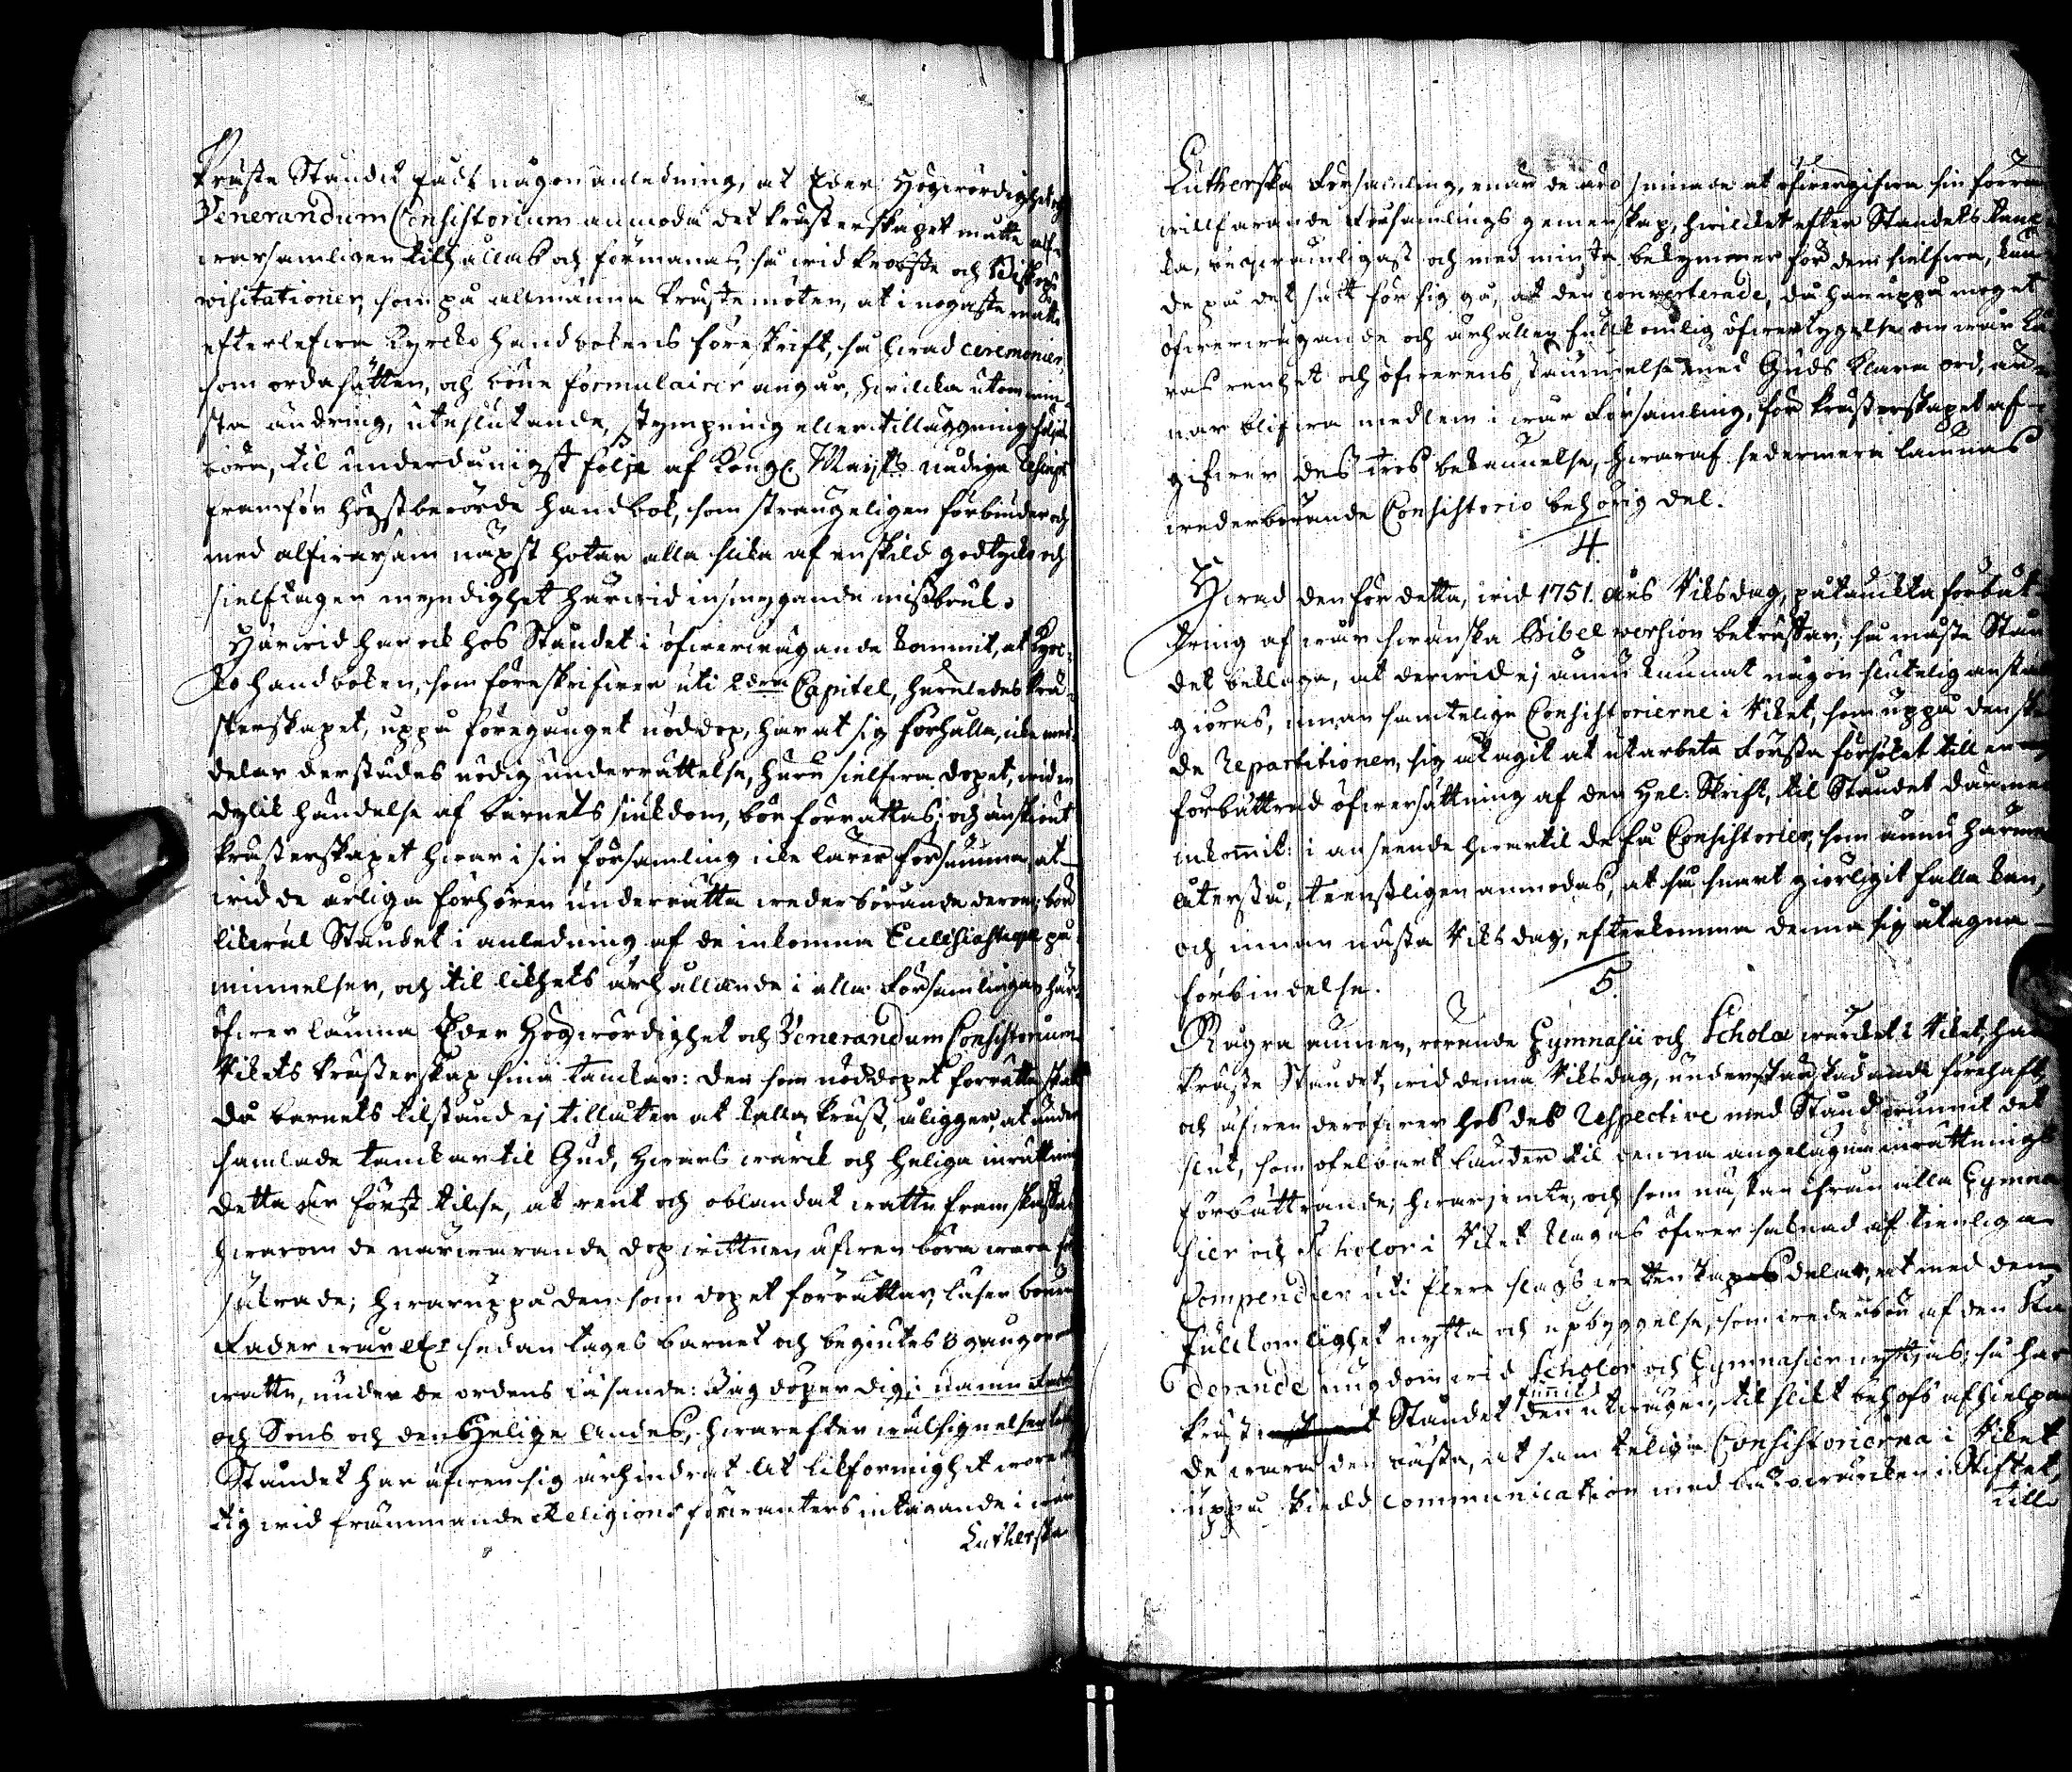 Präste Ståndet haft någon anledning, at Eder Högwördighet och
Venerandum Consistorium anmoda det Prästerskapet måtte alf-
warsamligen tilhållas och förmanas, så wid Probste och Biskops
visitationer, som på allmänna Prästemöten, at i nogaste måtto
efterlefwa Kyrcko handbokens föreskrift, så hwad ceremonier,
som ordasätten, och böne formulairer angår, hwilcka utom min-
sta ändring, uteslutande, stympning eller tilläggning följas
böra, til underdånigst följe af Kongl. Maij:ts nådiga Rescript
framför högstberörde handbok, som strängeligen förbinder och
med alfwarsam näpst hotar alla slika af enskild godtycko och
sielftagen myndighet härwid insmygande missbruk.
Härwid har ock hos Ståndet i öfwerwägande kommit, at Kyrc-
ko handboken, som föreskrifwer uti 2dra Capitel, huruledes Prä-
sterskapet, uppå föregånget nöddop, har at sig förhålla, icke med-
delar derstädes nödig underrättelse, huru sielfwa dopet, wid en
dylik händelse af barnets siukdom, bör förrättas; och ansköint
Prästerskapet hwar i sin församling icke lärer försumma, at
wid de årliga förhören underrätta wederbörande derom; bord
likwäl Ståndet i anledning af de inkomna Ecclesiastique på-
minnelser, och til likhets ärhållande i alla Församlingar här-
öfwer lämna Eder Högwördighet och Venerandum Consistorium
Rikets Prästerskap sina tanckar: den som nöddopet förrätta skall
då barnets tilstånd ej tillåter at kalla Präst, åligger, at under
samlade tanckar til Gud, hwars wärck och heliga inrättning
detta är först tilse, at rent och oblandat watten framskaffas
hwarom de närwarande dop wittnen äfwen böra wara för-
säkrade; hwaruppå den som dopet förrättar, läser bönen
Fader wår etc: sedan tages barnet och begiutes 3 gånger med
watten, under de ordens läsande: Jag döper dig i namn Faders
och Sons och den Helige Andes, hwarefter wälsignelsen
Ståndet har äfwen sig ärhindrat at likformighet wore
tig wid främmande Religions förwanters intagande i wår
Lutherska
Lutherska Församling, enär de äro sinnade at öfwergifwa sin förra
willfarande Församlings gemenskap, hwilcket efter Ståndets tanc-
ka, beqwämligast och med minsta bekymmer för dem sielfwa, kun-
de på det sätt för sig gå, at den converterade, då han uppå moget
öfwerwägande och ärhållen fullkomlig öfwertygelse om wår Lä-
ras renhet och öfwerensstämmelse med Guds klara ord, än-
nar blifwa medlem i wår Församling, för Prästerskapet af-
gifwer des tros bekännelse, hwaraf sedermera lämnas
wederbörande Consistorio behörig del.
4.
Hwad den för detta, wid 1751. års Riksdag, påtänckta förbät-
tring af wår swänska Bibel version beträffar; så måste Stån-
det beklaga, at derwid ej ännu kunnat någon slutelig anstalt
giöras, innan samtelige Consistorierne i Riket, som uppå den ske-
de Repartitionen, sig åtagit at utarbeta första försöket till en
förbättrad öfwersättning af den Hel: Skrift, til Ståndet därmed
inkommit: i anseende hwartil de få Consistorier, som ännu härmed
återstå, tienstligen anmodas, at så snart giörligit falla kan,
och innan nästa Riksdag, efterkomma denna sig åtagna
förbindelse.
5.
Några ämnen, rörande Gymnasii och Scholæ wärcket i Riket, har
Präste Ståndet, wid denna Riksdag, under skärskådande förehaft,
och äfwen deröfwer hos det Respective med Ståndet
slut, som ofelbart länder til denna angelägna inrättnings
förbättrande; hwarjemte, och som nästan ifrån alla Gymna-
sier och Scholor i Riket klagas öfwer saknad af tienliga
Compendier uti flere slags wettenskaps delar, at med den
fullkomlighet nytta och upbyggelse, som wederbör af den Stu-
derande ungdom wid Scholor och Gymnasier nyttjas; så har
Präste Ståndet funnit den utwägen, til slikt behofs afhielpan-
de wara den bästa, at samtelige Consistorierna i Riket
uppå skiedd communication med Lärowärcken i Stiftet,
till